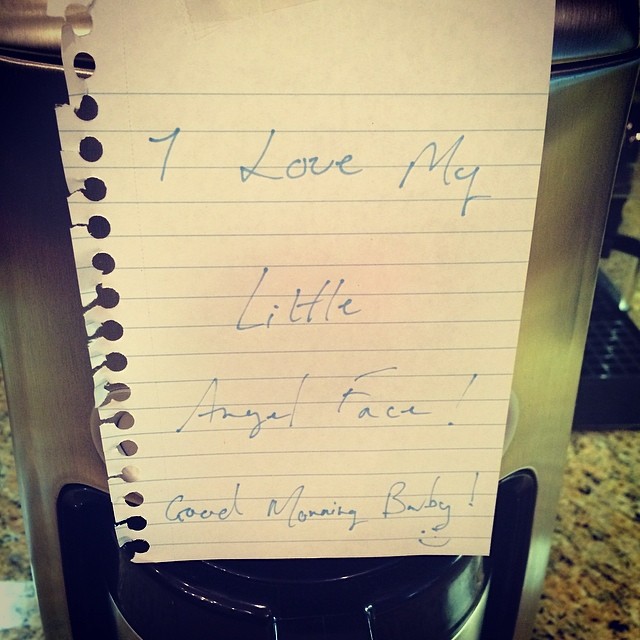 I Love My
Little
Angel Face!
Good Morning Baby!